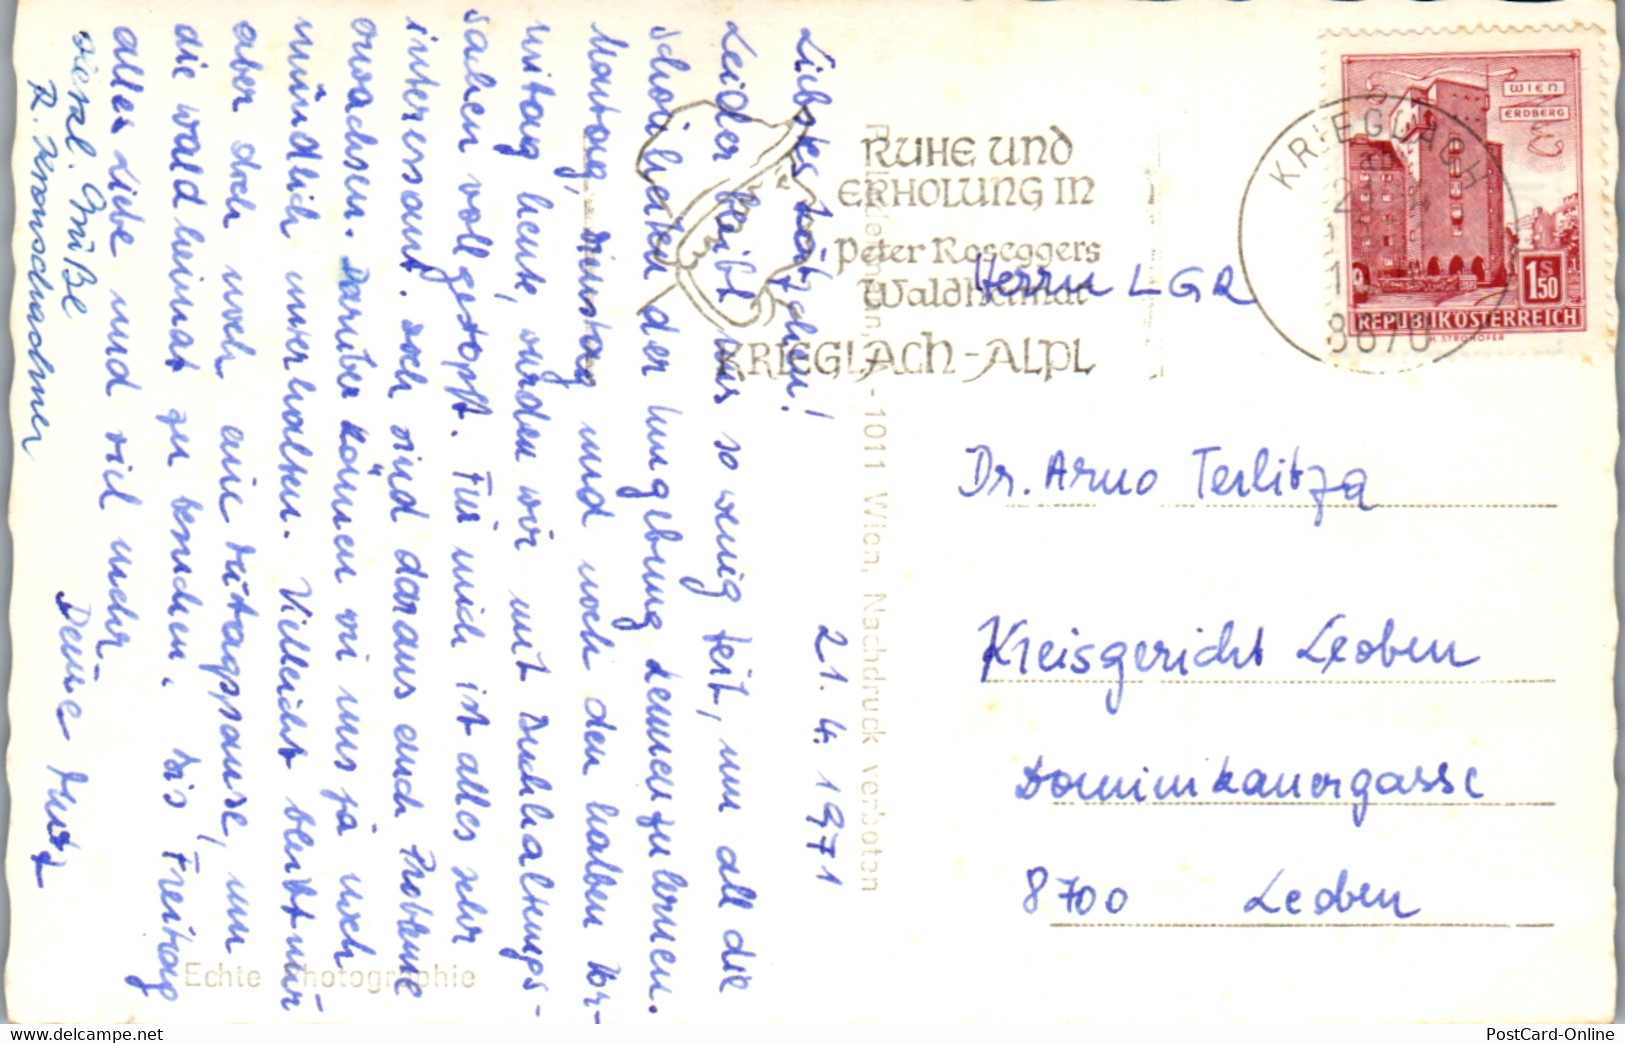 21. 4. 1971
Liebstes Kätzchen!
Leider bleibt uns so wenig Zeit, um all die
schönheiten der Umgebung kennenzulernen.
Montag, Dienstag und noch den halben Vor-
mittag heute, wurden wir mit Buchhaltungs-
sachen vollgestopft. Für mich ist alles sehr
interessant. Doch sind daraus auch Probleme
erwachsen. Darüber können wir uns ja noch
mündlich unterhalten. Vielleicht bleibt mir
aber doch noch eine Mittagspause, um
die Waldheimat zu besuchen. Bis Freitag
alles Liebe und viel mehr
Deine
Herzl. Grüße
R. Kronschachner
RUHE UND
ERHOLUNG IN
Peter Roseggers
Waldheimat
KRIEGLACH-ALPL
KRIEGLACH
8670
WIEN
ERDBERG
1S50
REPUBLIK ÖSTERREICH
H. STROHOFER
Herrn LGR
Dr. Arno Terlitza
Kreisgericht Leoben
Dominikanergasse
8700 Leoben
- 1011 Wien, Nachdruck verboten
Echte Photographie
www.delcampe.net
PostCard-Online